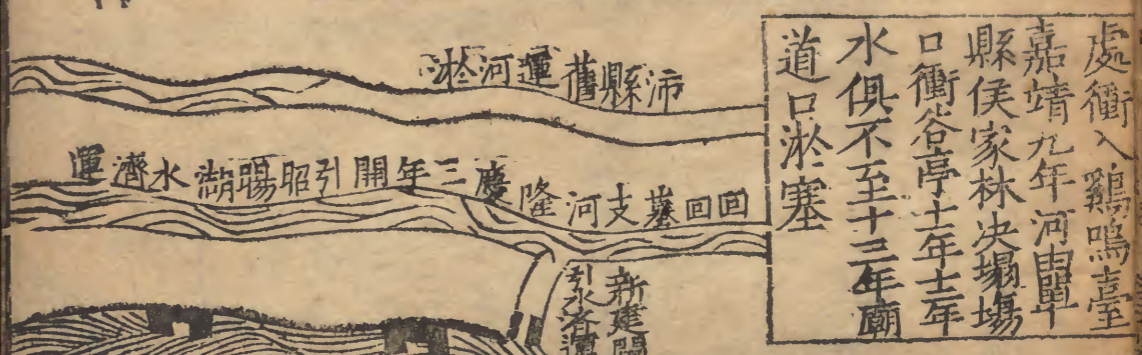 處衝入雞鳴臺
嘉靖九年河由單
縣侯家林決塌塲
口衝谷亭十一年十二年
水俱不至十三年廟
道口淤塞
沛縣舊運河淤
回回墓支河隆慶三年開引昭陽湖水濟運
新建閘
引水濟運